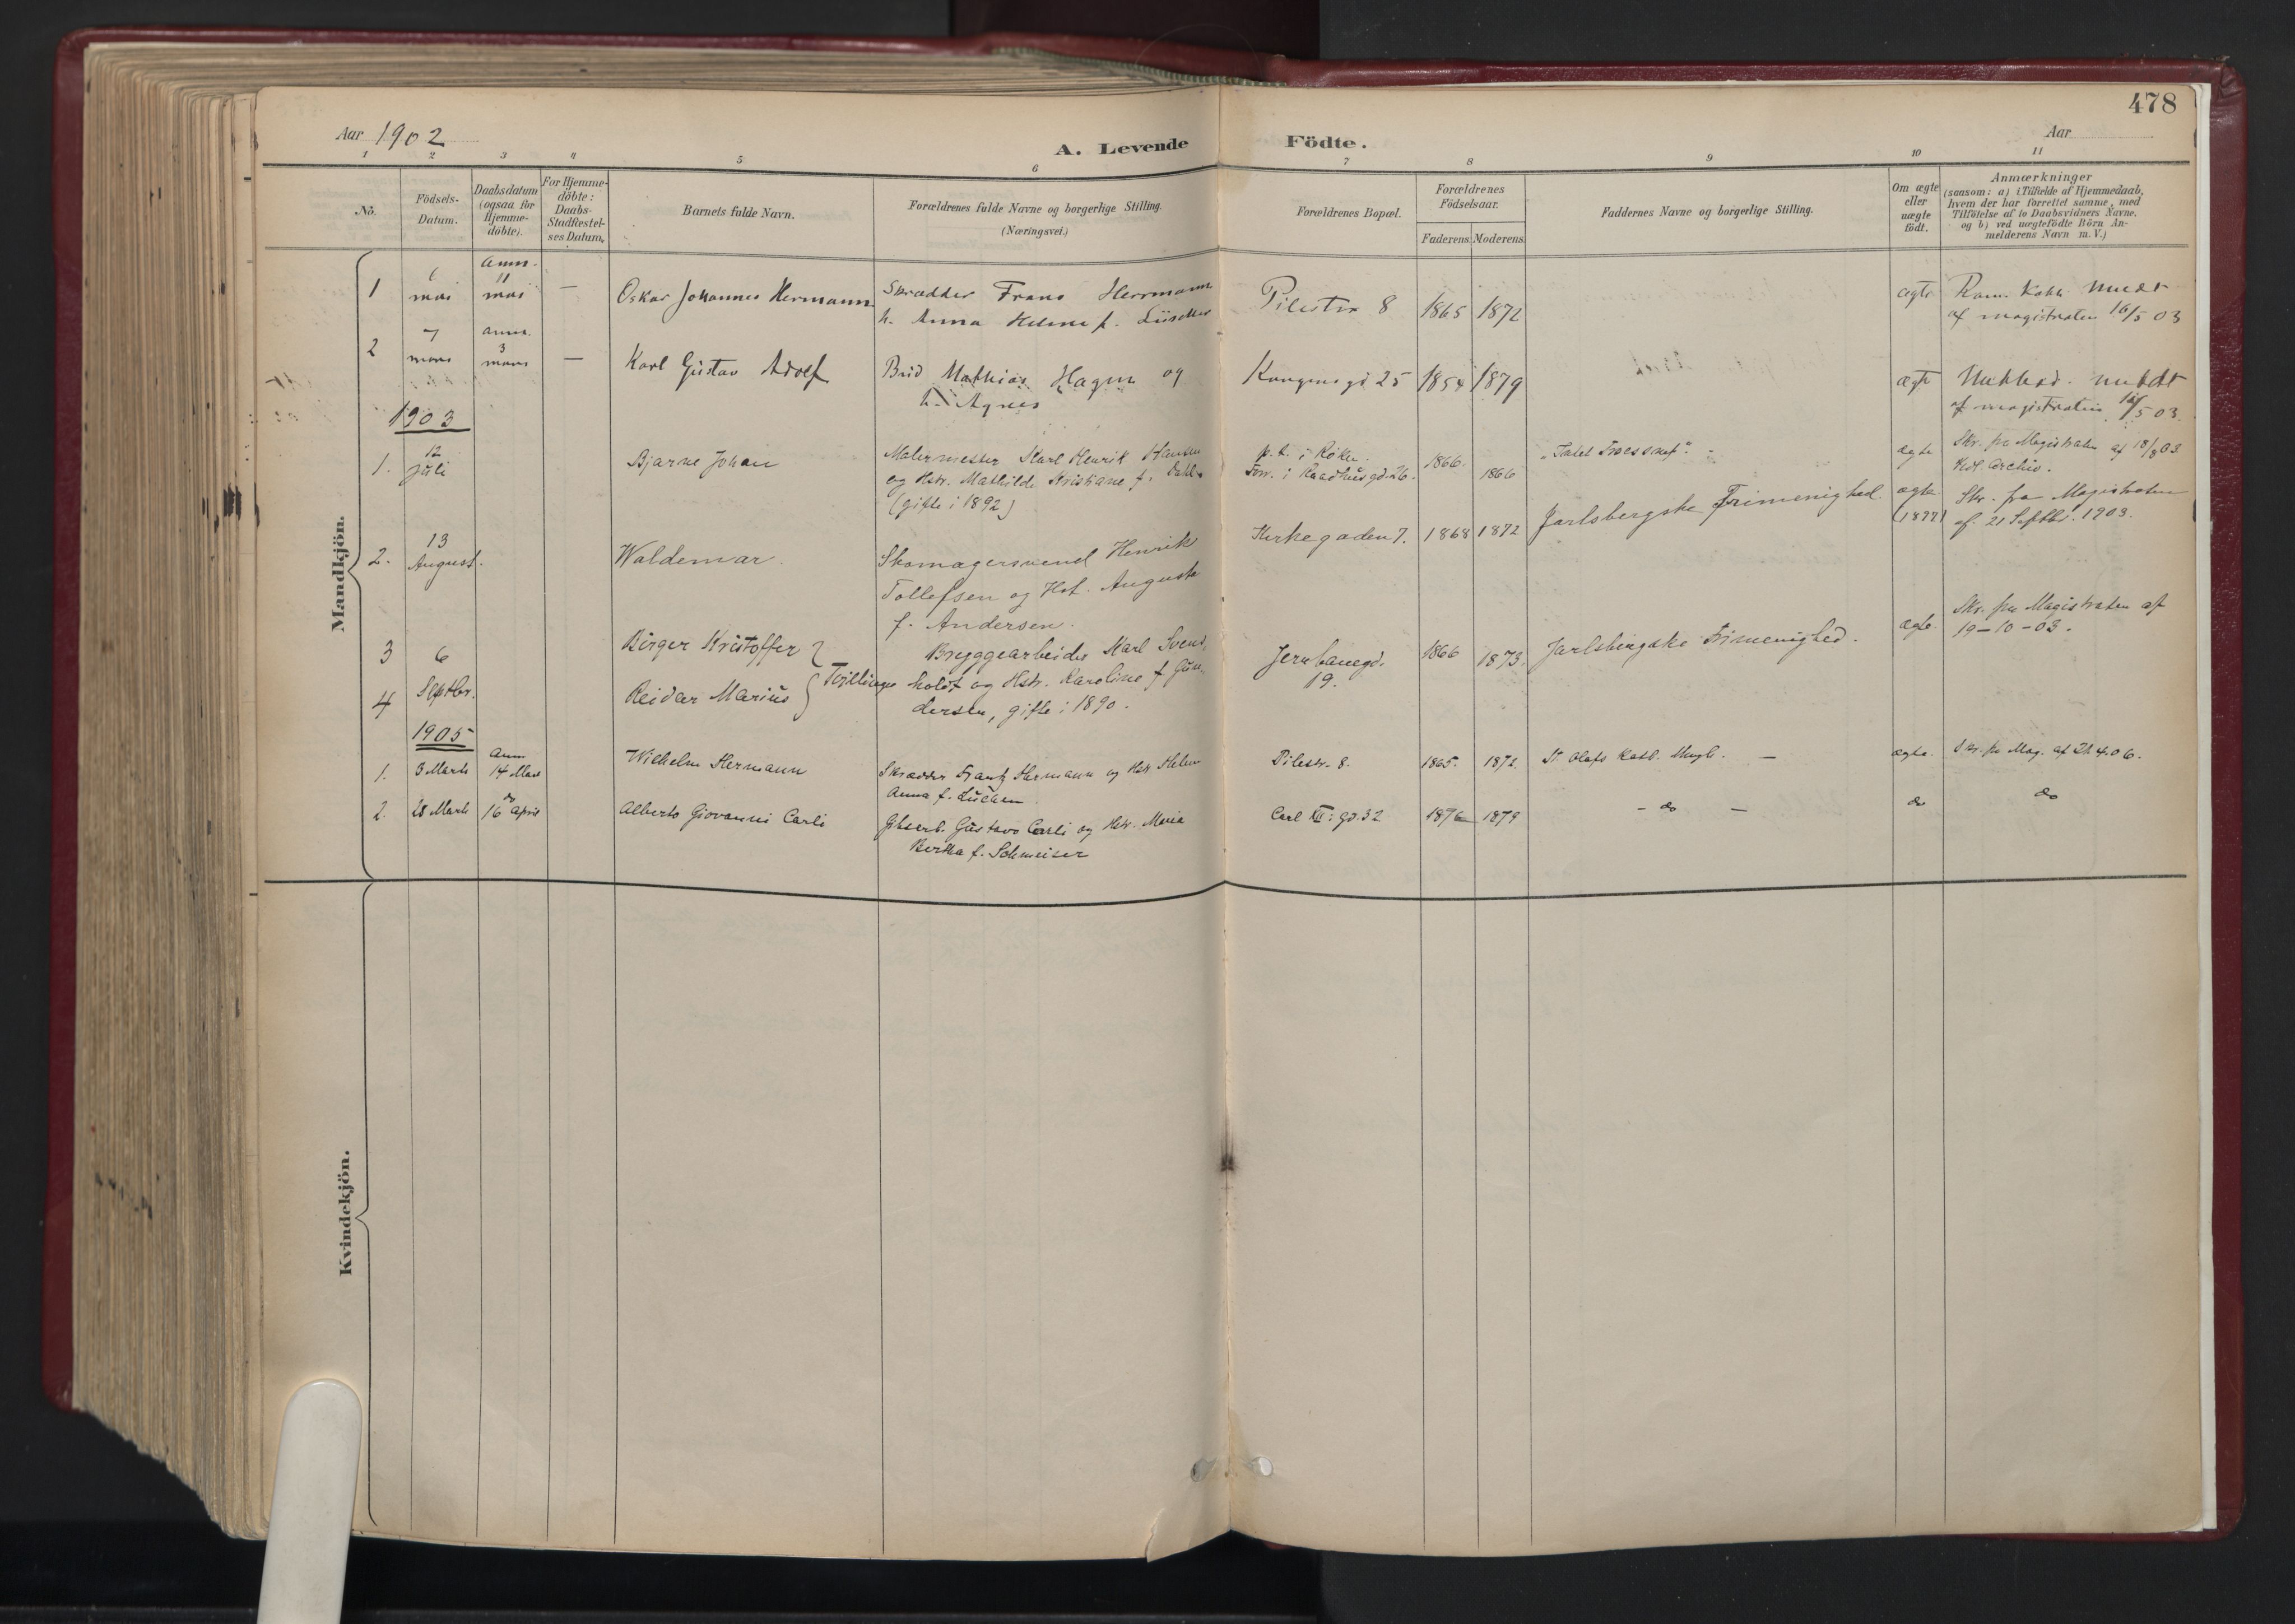 478
Aar 1902
A. Levende Födte.
Aar
1 2 3 4 5 6 7 8 9 10 11
No.
Födsels-
Datum.
Daabsdatum
(ogsaa for
Hjemme-
döbte).
For Hjemme-
döbte:
Daabs-
Stadfæstel-
ses Datum.
Barnets fulde Navn.
Forældrenes fulde Navne og borgerlige Stilling.
(Næringsvei.)
Forældrenes Bopæl.
Forældrenes
Födselsaar.
Faderens. Moderens.
Faddernes Navne og borgerlige Stilling.
Om ægte
eller
uægte
födt.
Anmærkninger
(saasom: a) i Tilfælde af Hjemmedaab,
hvem der har forrettet samme, med
Tilföielse af to Daabsvidners Navne.
og b) ved uægtefödte Börn An-
melderens Navn m. V.)
Mandkjön.
1 6 mai anm. 11 mai — Oskar Johannes Hermann Skrædder Frans Herrmann
h. Anna Helene f. Pilestr 8 1865 1872 ægte Rom. Kath. Medt
af magistraten 16/5 03
2 7 mars anm. 3 mars — Karl Gustav Adolf Mathias Hagen og
h. Agnes Kongensgd. 25 1854 1879 ægte meddt
af magistraten 16/5 03.
1903
1. 12 Juli Bjarne Johan Malermester Karl Henrik Hansen
og Hstr. Mathilde Kristiane f. Dahl.
(gifte i 1892) p. t. i Röken.
Forr. i Raadhusgd. 26. 1866. 1866 ægte Skr. fra Magistraten af 18/8 03
Kdl. Archiv.
2. 13 August. Waldemar. Skomagersvend Henrik
Tollefsen og Hst. Augusta
f. Andersen. Kirkegaden 7. 1868 1872 Jarlsbergske Frimenighed. ægte Skr. fra Magistraten
af 21 Septbr. 1903.
3 6 Septbr. Birger Kristoffer
4 Reidar Marius } Tvillinger Bryggearbeider Karl Svend-
holdt og Hstr. Karoline f. Gun-
dersen, gifte i 1890. Jernbanegd.
19. 1866 1873. Jarlsbergske Frimenighed. ægte. Skr. fra Magistraten af
19-10-03.
1905
1. 3 Marts anm 14 Mars Wilhelm Hermann Skrædder Frantz Hermann og Hstr Helene
Anna f. Pilestr. 8. 1865. 1872. St Olafs Kath. Mngh. — ægte. Skr. fra Mag. af 24.06.
2. 28 Marts do 16 April Alberto Giovanni Carli Gibserb. Gustavo Carli og Hstr. Maria
Bertha f. Schmeiser Carl XII: gd. 32 1876 1879 - do — do do
Kvindekjön.